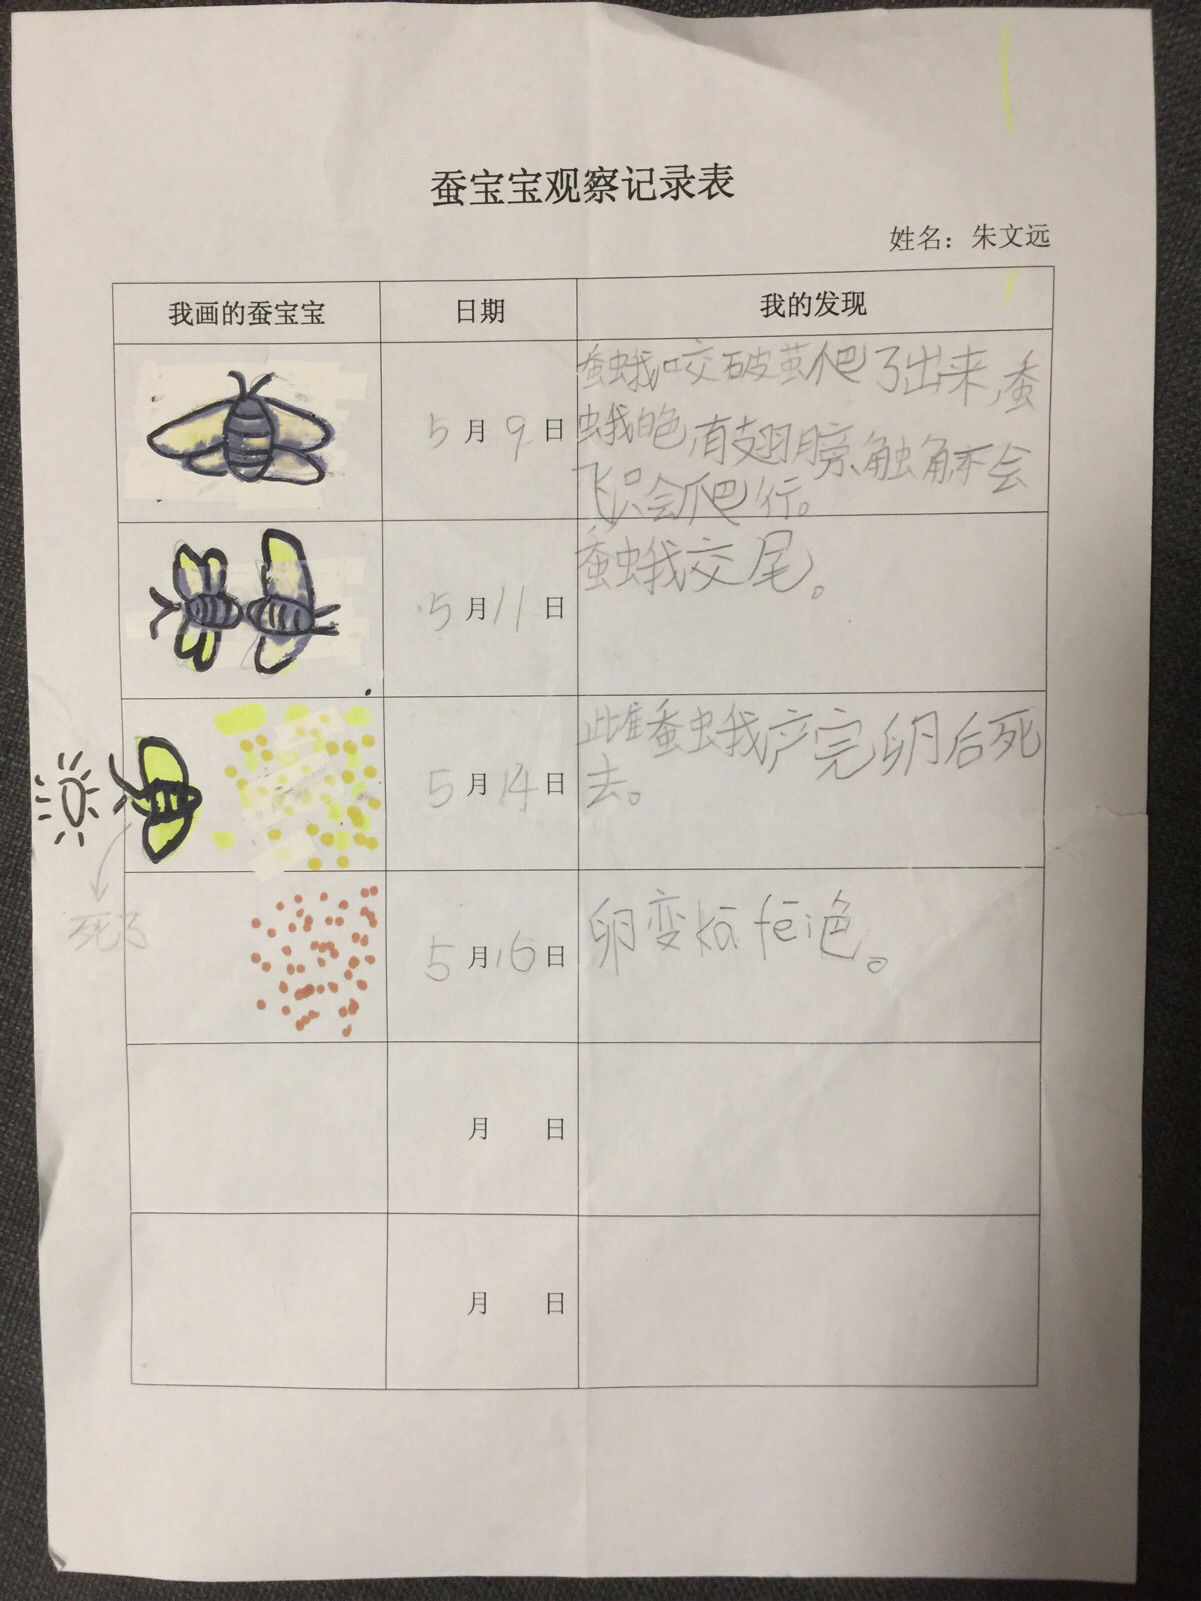 蚕宝宝观察记录表
姓名：朱文远
我画的蚕宝宝 日期 我的发现
5月9日
蚕蛾咬破茧爬了出来,蚕
蛾白色,有翅膀、触角不会
飞只会爬行。
5月11日
蚕蛾交尾。
5月14日
雌蚕蛾产完卵后死
去。
死了
5月16日
卵变kā fēi色。
月 日
月 日